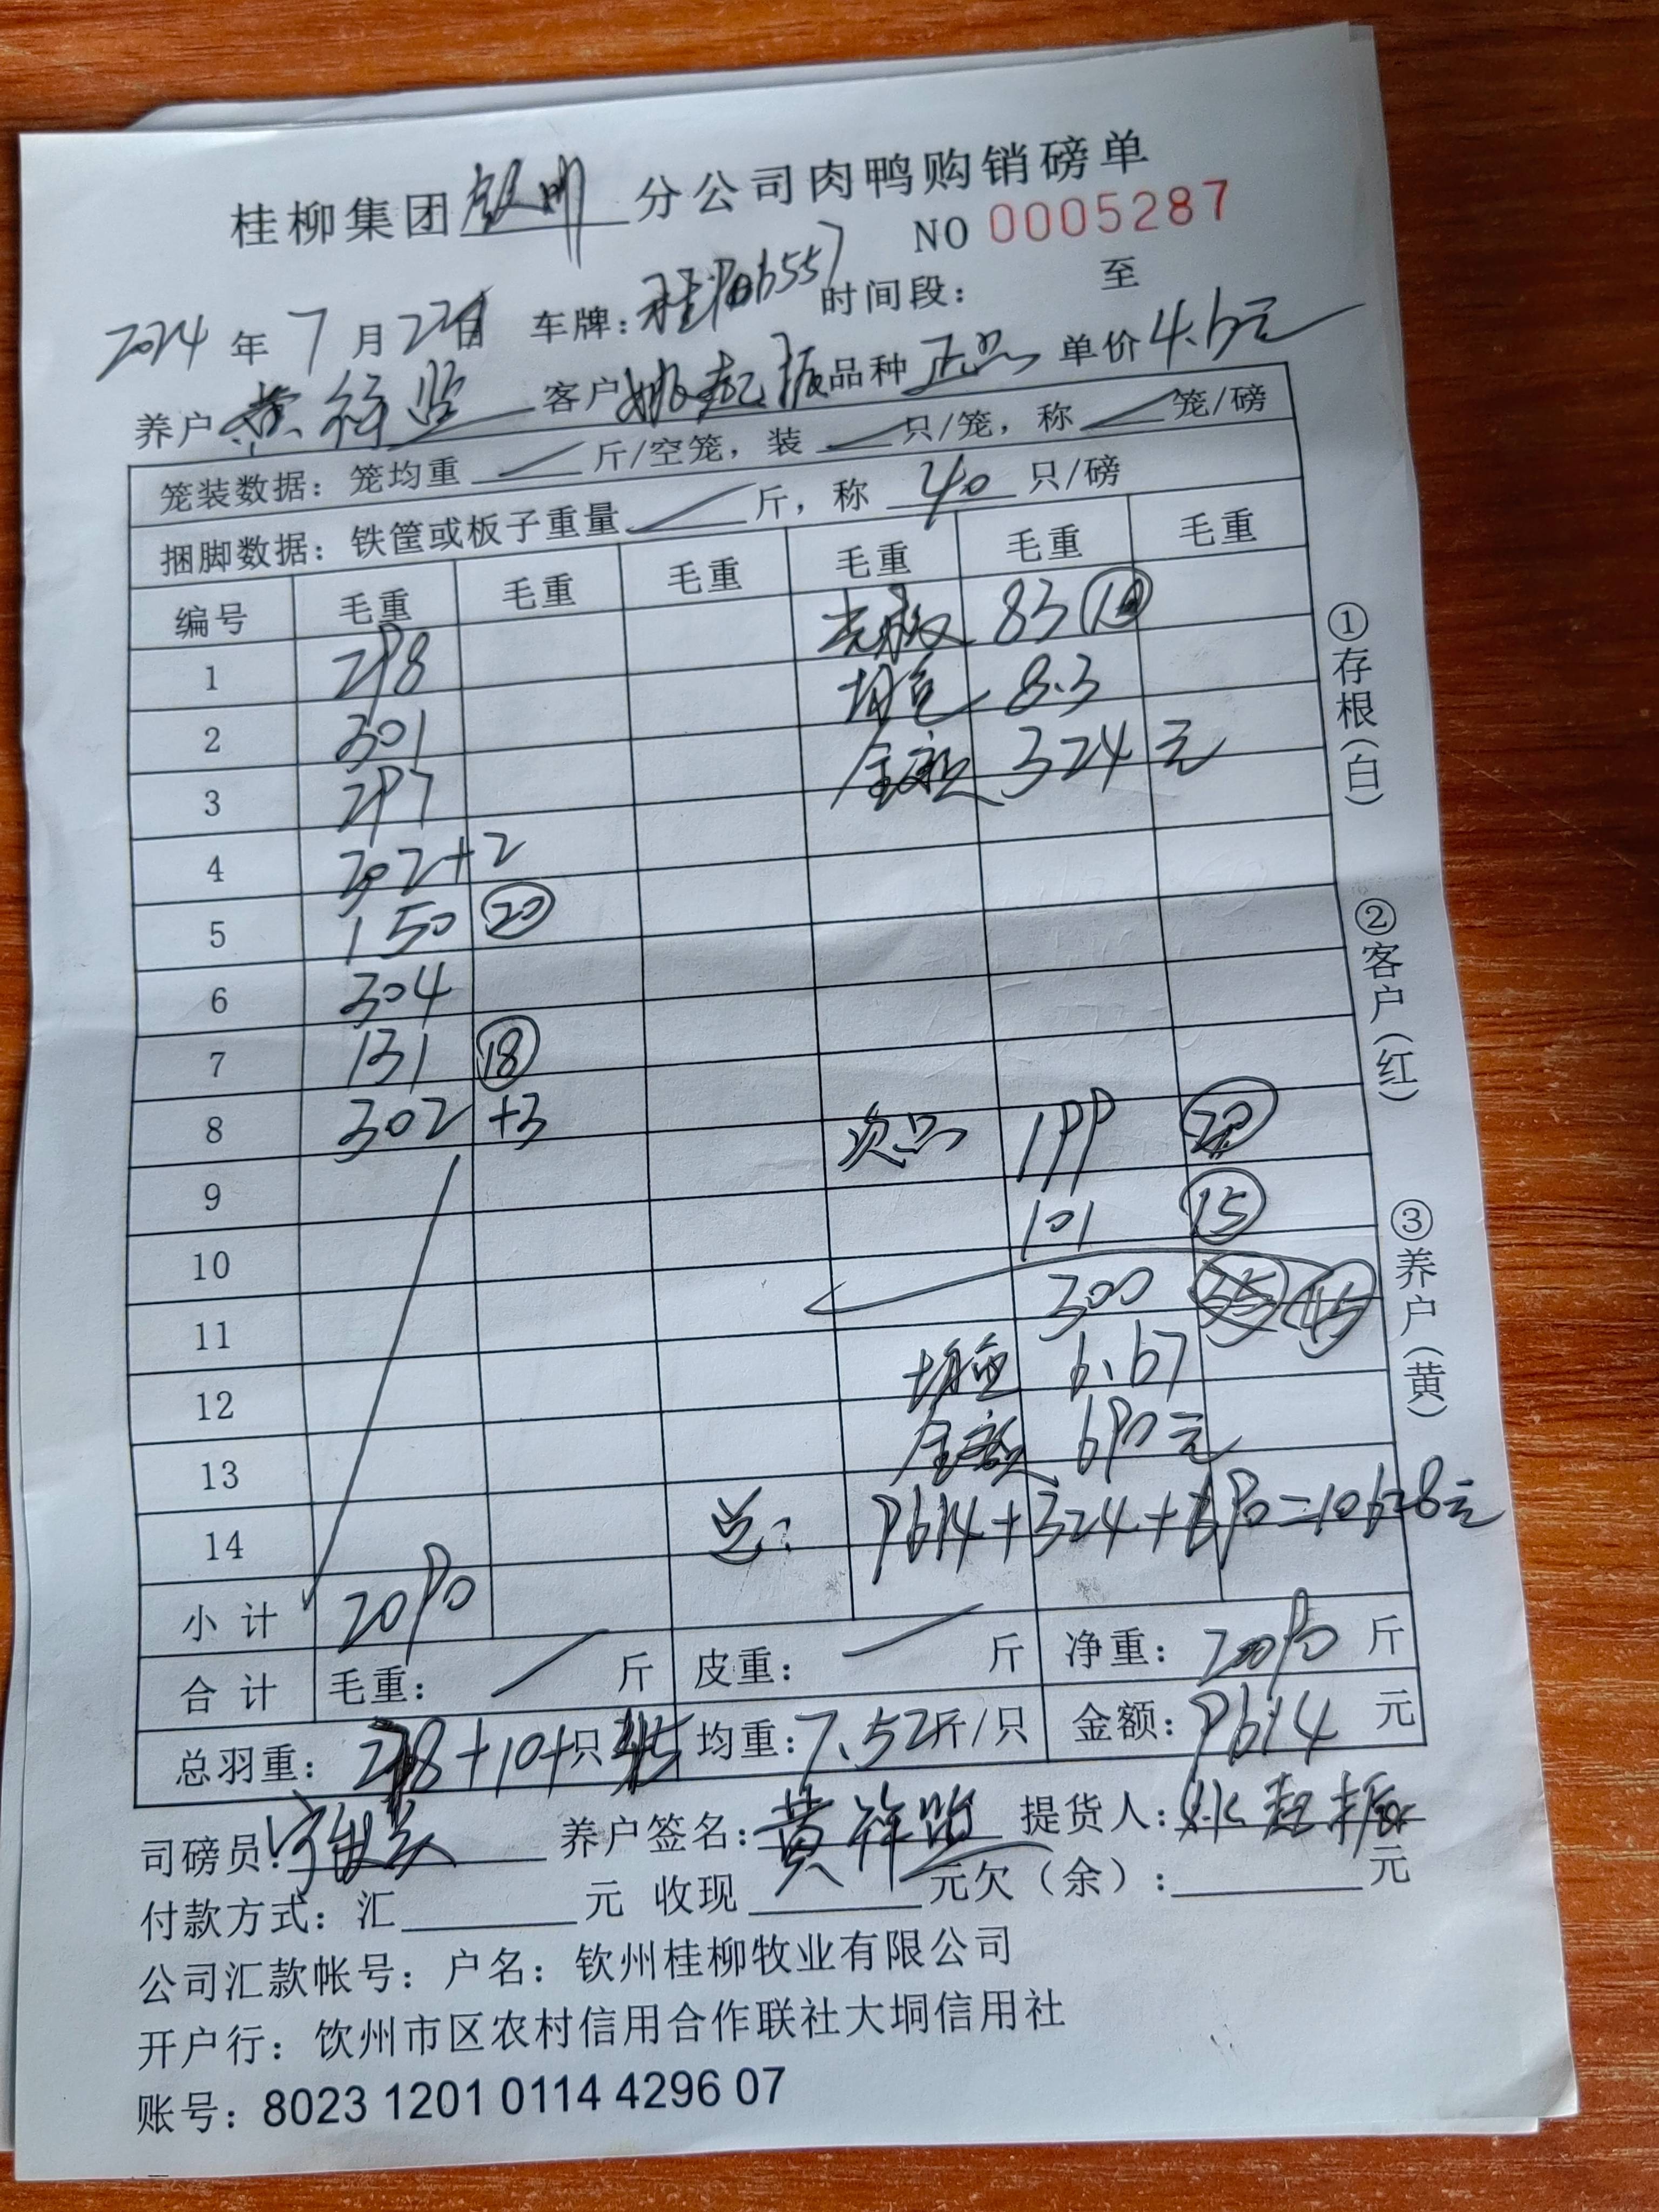 桂柳集团 钦州 分公司肉鸭购销磅单
NO 0005287
2024 年 7 月 22日 车牌: 时间段: 至
养户 黄祥 客户 姚起振 品种 正品 单价 4.6元
笼装数据: 笼均重 斤/空笼, 装 只/笼, 称 笼/磅
捆脚数据: 铁筐或板子重量 斤, 称 40 只/磅
编号 毛重 毛重 毛重 毛重 毛重 毛重
83 10
1 298 均重 8.3
2 301 金额 324 元
3 297
4 302+2
5 150 20
6 304
7 131 18
8 302 +3 次品 199
9 101 15
10 300
11 均重 6.67
12 金额 690元
13 总: 9614+324+690=10628元
14
小计 2090
合计 毛重: 斤 皮重: 斤 净重: 2090 斤
总羽重: +10+ 只 45 均重: 7.52斤/只 金额: 9614 元
司磅员: 养户签名: 黄祥 提货人: 姚起振
付款方式: 汇 元 收现 元欠(余): 元
公司汇款帐号: 户名: 钦州桂柳牧业有限公司
开户行: 钦州市区农村信用合作联社大垌信用社
账号: 8023 1201 0114 4296 07
①存根(白)
②客户(红)
③养户(黄)